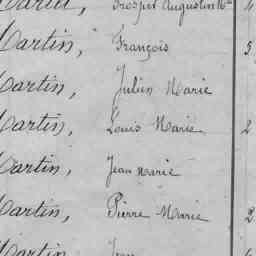 Martin, Prosper Augustin Mie 4
Martin, François 5
Martin, Julien Marie
Martin, Louis Marie 2
Martin, Jean Marie
Martin, Pierre Marie 2
Martin, Jean